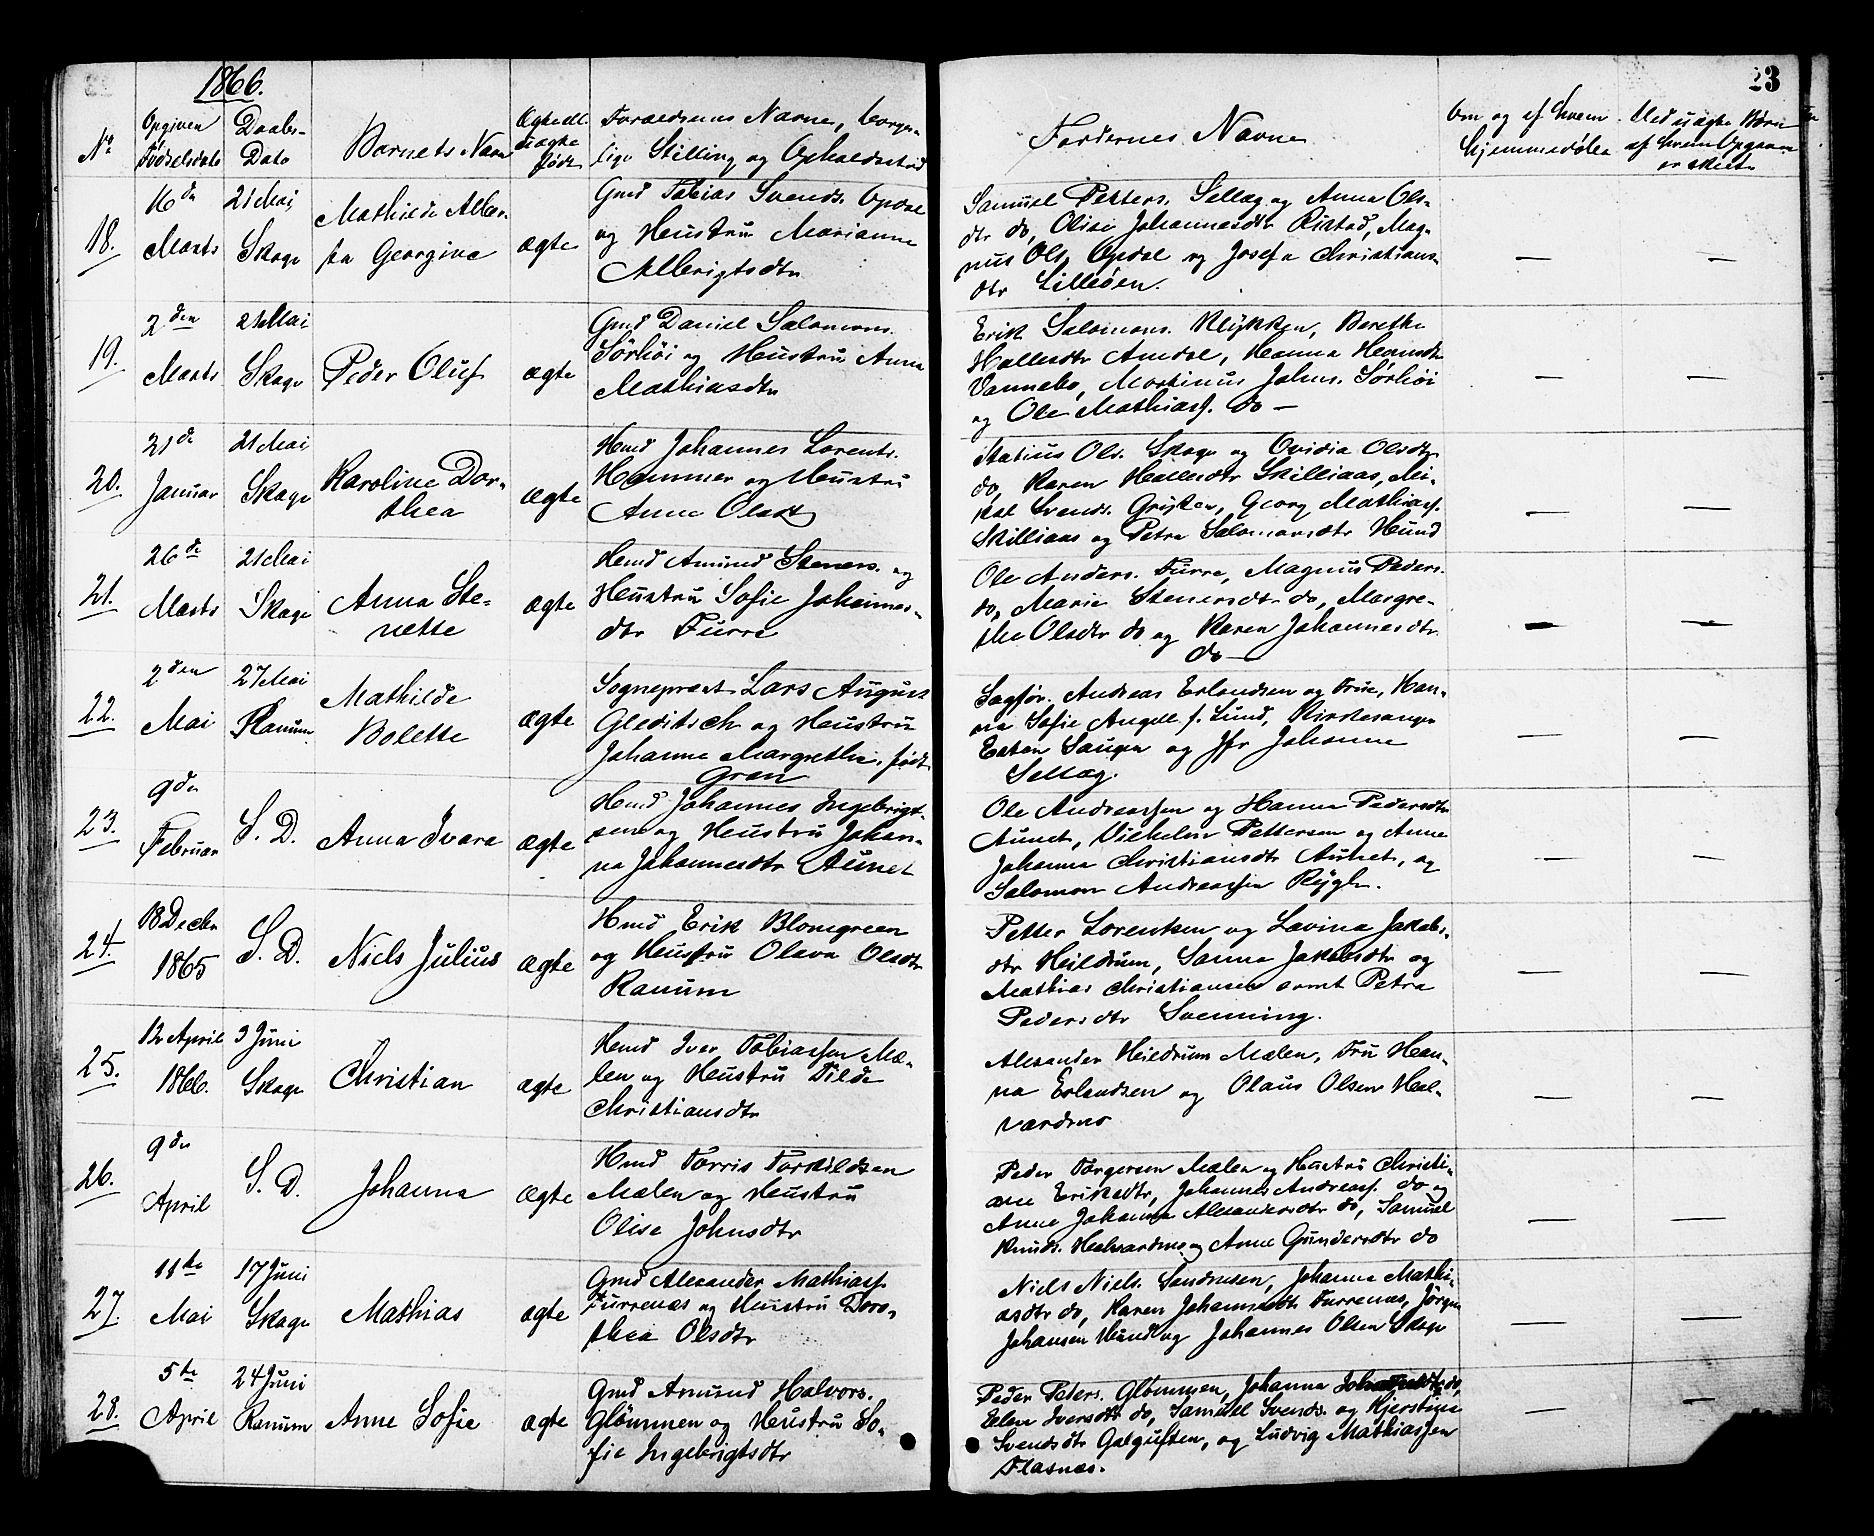 1866.
23
No
Opgiven Fødselsdato
Daabs-Dato
Barnets Navn
Ægte ell. uægte født
Forældrenes Navne, borger-
lige Stilling og Opholdssted
Faddernes Navne
Om og af hvem
hjemmedøbt
Ved uægte Børn
af hvem Opgaven
er skeet
18.
16de Marts
21 Mai, Skage
Mathilde Alber-
ta Georgine
ægte
Gmd Tobias Svends. Opdal
og Hustru Marianne
Albrigtsdtr
Samuel Petters. Sellæg og Anna Ols-
dtr do, Olise Johannesdtr Ristad, Mag-
nus Ols. Opdal og Josefa Christians-
dtr Lilleøen.
—
—
19.
2den Marts
21 Mai Skage
Peder Oluf
ægte
Gmd Daniel Salomons.
Sørhøi og Hustru Anna
Mathiasdtr
Erik Salomons. Klykken, Berethe
Hallesdtr Amdal, Hanna Hansdtr
Vannebo, Martinus Johns. Sørhøi
og Ole Mathiass. do —
—
—
20.
21de Januar
21 Mai, Skage
Karoline Dor-
thea
ægte
Hmd Johannes Lorents.
Hammer og Hustru
Anne Olsdtr
Statius Ols. Skage og Ovidia Olsdtr
do, Karen Hallesdtr Skilliaas, Mi-
kal Svends. Grysker, Georg Mathiass.
Skilliaas og Petra Salomonsdtr Hund
—
—
21.
26de Marts
21 Mai Skage
Anna Ste-
nette
ægte
Hmd Amund Steners. og
Hustru Sofie Johannes-
dtr Furre
Ole Anders. Furre, Magnus Peders.
do, Marie Stenersdtr do, Margre-
the Olsdtr do og Karen Johannesdtr
do —
—
—
22.
2den Mai
27 Mai Ranum
Mathilde
Bolette
ægte
Sognepræst Lars August
Gleditsch og Hustru
Johanne Margrethe, født
Gran
Sagfør. Andreas Erlandsen og Frue, Han-
na Sofie Angell f. Lund, Kirkesanger
Esten Saugen og Jfr Johanne
Sellæg.
—
—
23.
9de Februar
S. D.
Anna Ivara
ægte
Hmd Johannes Ingebrigt-
sen og Hustru Johan-
na Johannesdtr Aunet
Ole Andreassen og Hanna Pedersdtr
Aunet, Vilhelm Pettersen og Anne
Johanna Christiansdtr Aunet, og
Salomon Andreassen Rygh.
—
—
24.
18 Decbr 1865
S. D.
Niels Julius
ægte
Hmd Erik Blomgreen
og Hustru Olava Olsdtr
Ranum
Petter Lorentsen og Lavina Jakobs-
dtr Heildrum, Sanna Jakobsdtr og
Mathias Christiansen samt Petra
Pedersdtr Svenning.
—
—
25.
12 April 1866.
3 Juni Skage
Christian
ægte
Hmd Iver Tobiassen Mæ-
len og Hustru Tilde
Christiansdtr
Alexander Heildrum Mælen, Fru Han-
na Erlandsen og Olaus Olsen Hal-
vardmo
—
—
26.
9de April
S. D.
Johanna
ægte
Hmd Torris Torkildsen
Mælen og Hustru
Olise Johnsdtr
Peder Torgersen Mælen og Hustru Christi-
ane Eriksdtr, Johannes Andreass. do og
Anne Johanna Alexandersdtr do, Samuel
Knuds. Halvardmo og Anne Gundersdtr do
—
—
27.
11te Mai
17 Juni Skage
Mathias
ægte
Gmd Alexander Mathiass.
Furrenæs og Hustru Doro-
thea Olsdtr
Niels Niels. Sandmoen, Johanna Mathi-
asdtr do, Karen Johannesdtr Furrenæs, Jørgen
Johansen Hund og Johannes Olsen Skage
—
—
28.
5te April
24 Juni Ranum
Anne Sofie
ægte
Gmd Amund Halvors.
Glømmen og Hustru So-
fie Ingebrigtsdtr
Peder Peters. Glømmen, Johanna do,
Elen Iversdtr do, Samuel Svends. og Kjerstine
Svendsdtr Galguften, og Ludvig Mathiassen
Flasnæs.
—
—